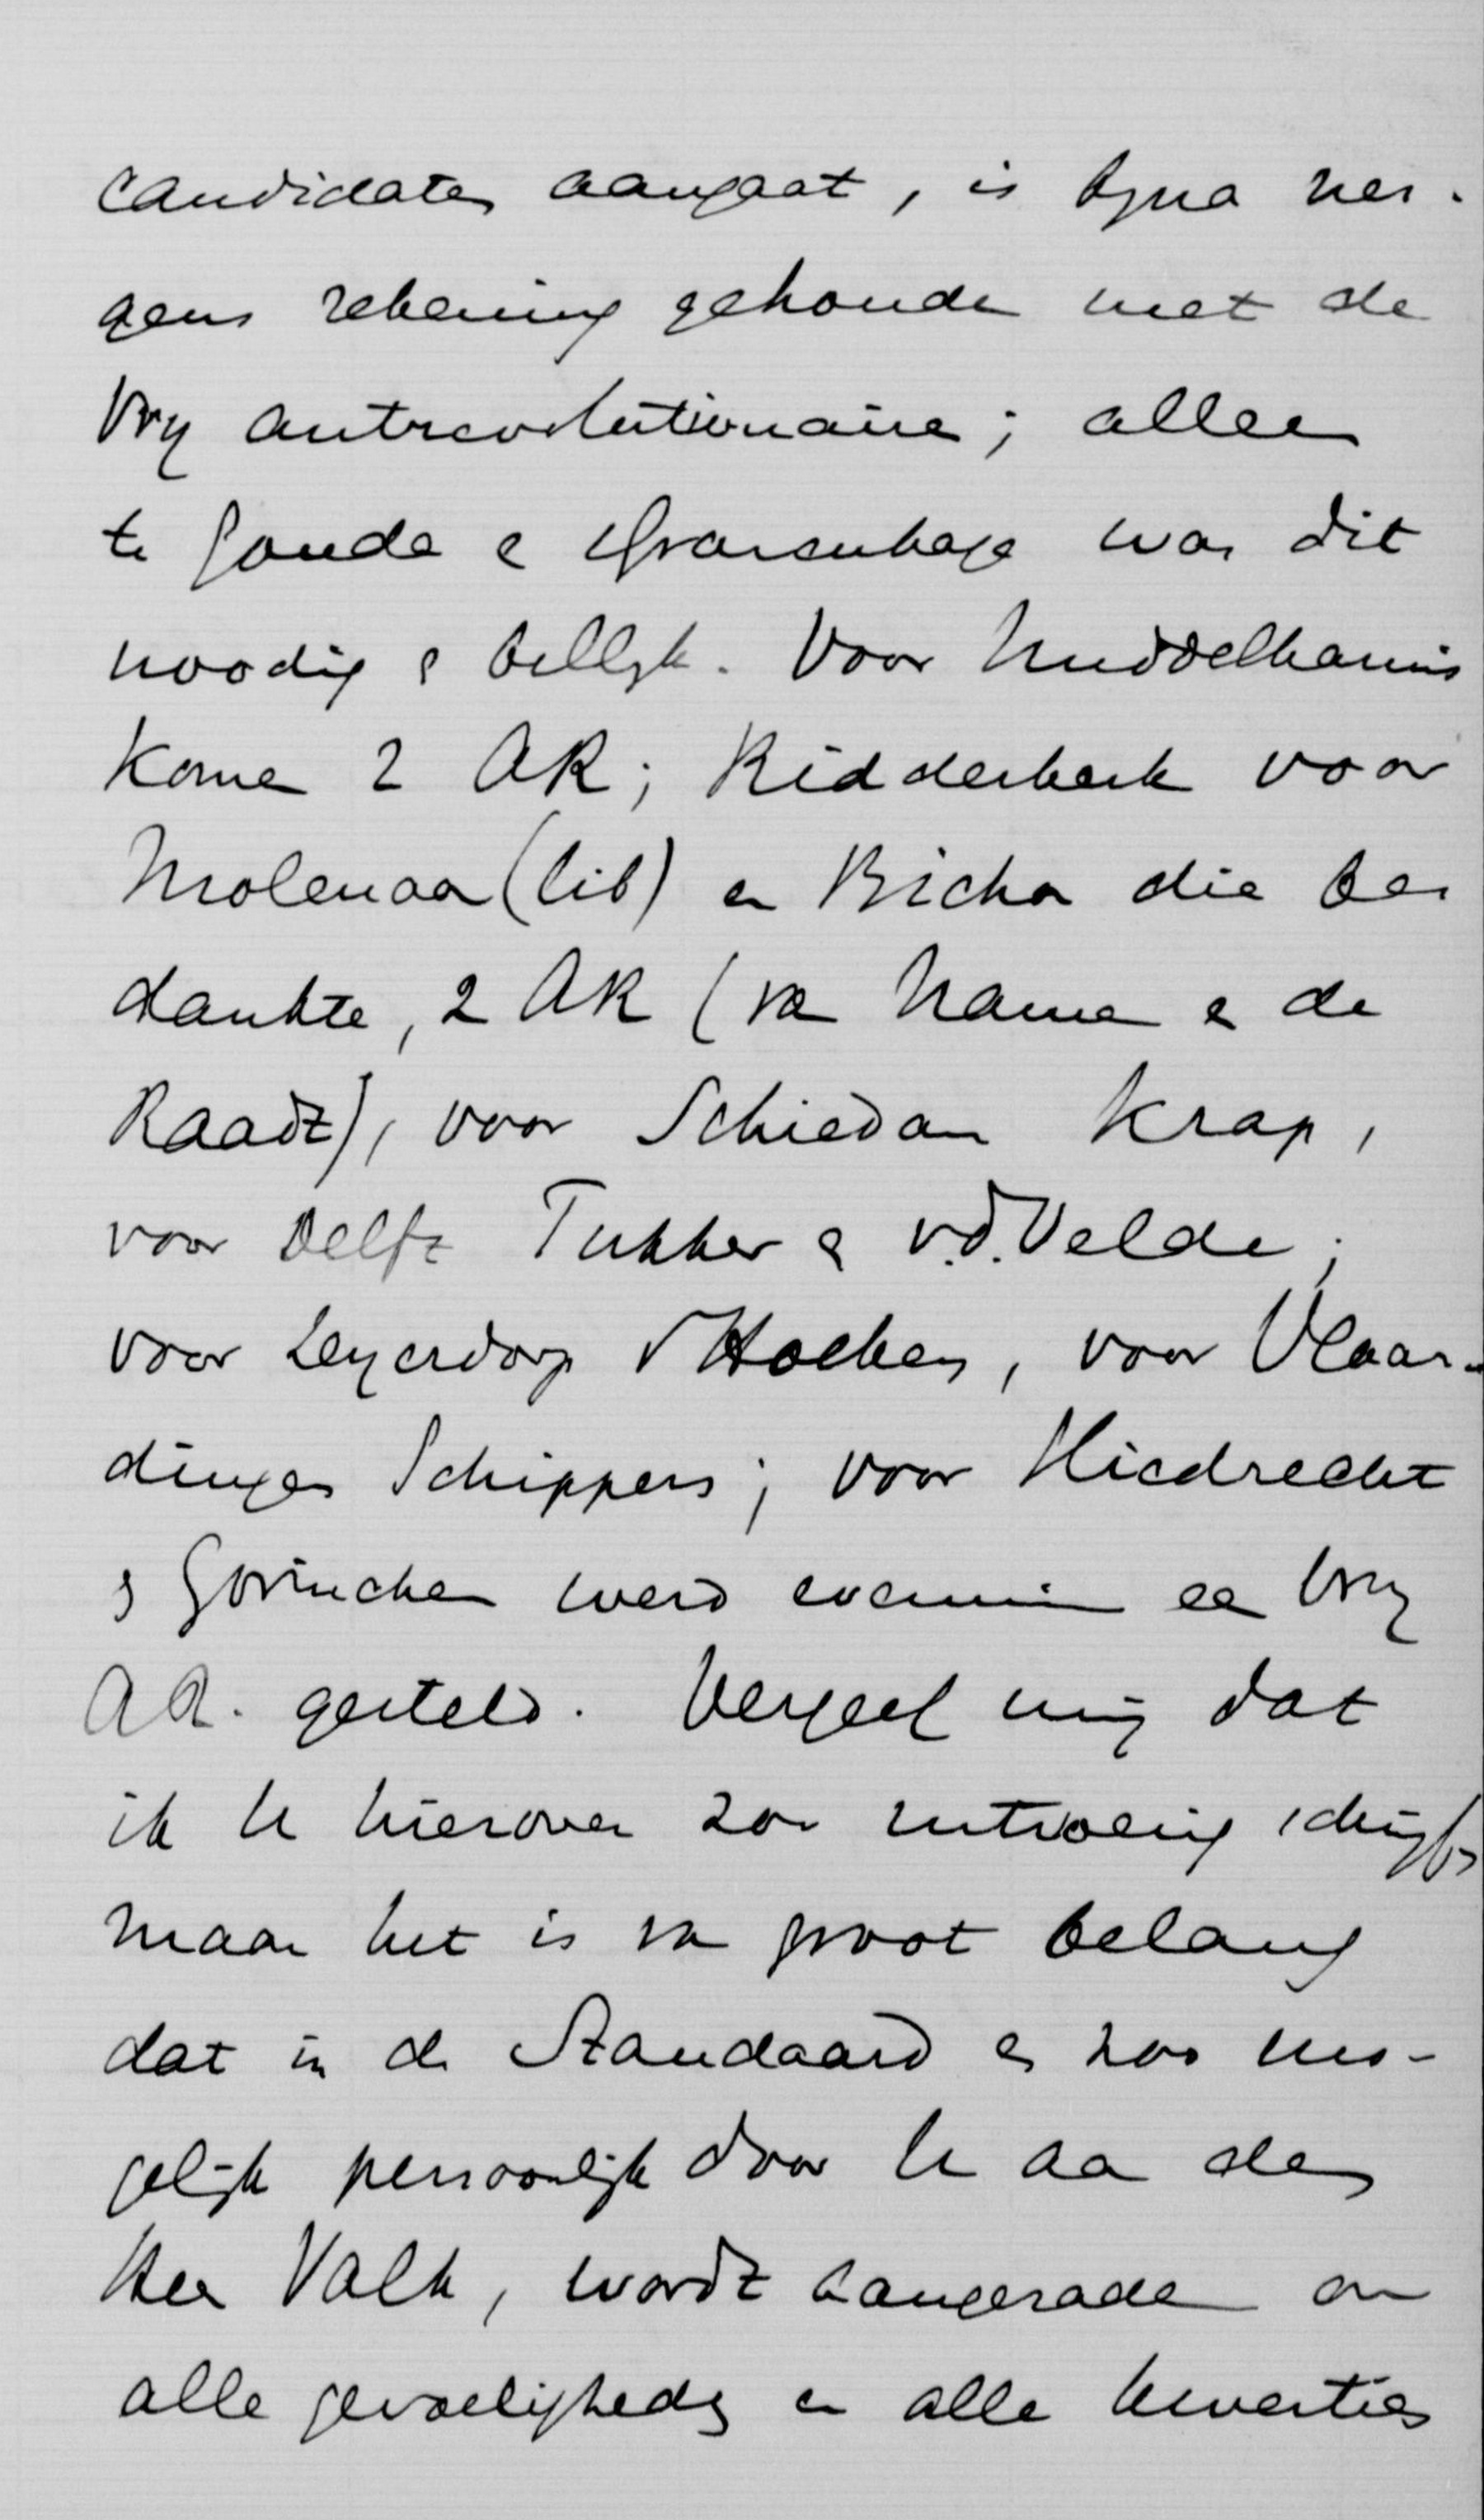 candidaten aangaat, is byna ner-
gens rekening gehouden met de
Vry antirevolutionaire; alleen
te Gouda en 's Gravenhage was dit
noodig en billyk. Voor Middelharnis
komen 2 AR; Ridderkerk voor
Molenaar (lib) en Bichon die be-
dankte, 2 AR (van Namen en de
Raadt), voor Schiedam Krap,
voor Delft Tukker en v.d. Velde;
voor Leyerdorp v Hoeken, voor Vlaar-
dingen Schippers; voor Sliedrecht
en Gorinchem werd evenmin een Vry
AR. gesteld. Vergeef mij dat
ik U hierover zoo uitvoerig schrijf,
maar het is van groot belang
dat in de Standaard en zoo mo-
gelijk persoonlijk door U aan den
Heer Valk, wordt aangeraden om
alle gevoeligheden en alle kwesties